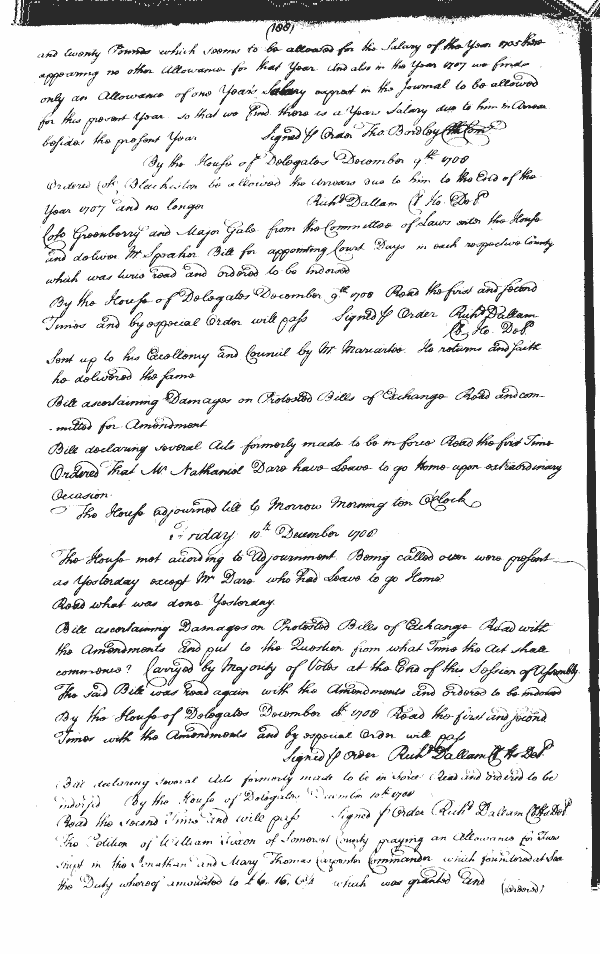 (188)
and twenty Pounds which seems to be allowed for the Salary of the Year 1705 there
appearing no other Allowance for that Year And also in the Year 1707 we find
only an Allowance of one Years Salary exprest in the Journal to be allowed
for this present Year so that we find there is a Years Salary due to him in Arrear
besides the present Year Signed p Order Tho. Bordley Cl Com
By the House of Delegates December 9th 1708
Ordered Mr Blackiston be allowed the Arrears due to him to the End of the
Year 1707 and no longer Richd Dallam Cl Ho. Delts
Colo Greenberry and Major Gale from the Committee of Laws enter the House
and deliver Mr Speaker Bill for appointing Court Days in each respective County
which was twice read and ordered to be Indorsed
By the House of Delegates December 9th 1708 Read the first and second
Times and by especial Order will pass Signed p Order Richd Dallam
Cl Ho. Delts
Sent up to his Excellency and Council by Mr Macartee. He returns and saith
he delivered the same
Bill ascertaining Damages on Protested Bills of Exchange Read and com-
-mitted for Amendment
Bill declaring several Acts formerly made to be in force Read the first Time
Ordered that Mr Nathaniel Dare have Leave to go Home upon extraordinary
Occasion.
The House adjourned till to Morrow Morning ten O'Clock
Friday 10th December 1708
The House met according to Adjournment Being called over were present
as Yesterday except Mr Dare who had Leave to go Home
Read what was done Yesterday
Bill ascertaining Damages on Protested Bills of Exchange Read with
the Amendments and put to the Question from what Time the Act shall
commence? Carryed by Majority of Votes at the End of this Session of Assembly.
The said Bill was Read again with the Amendments and ordered to be indorsed
By the House of Delegates December 1708 Read the first and second
Times with the Amendments and by especial Order will pass
Signed p Order Richd Dallam Cl Ho Delts
Bill declaring several Acts formerly made to be in force Read and ordered to be
indorsed By the House of Delegates December 10th 1708
Read the second Time and will pass Signed p Order Richd Dallam Cl Ho Delts
The Petition of William of Somerset County praying an Allowance for
in the Jonathan and Mary Thomas Carpenter Commander which foundered at Sea
the Duty whereof amounted to £ 6. 16. which was granted And
(ordered)